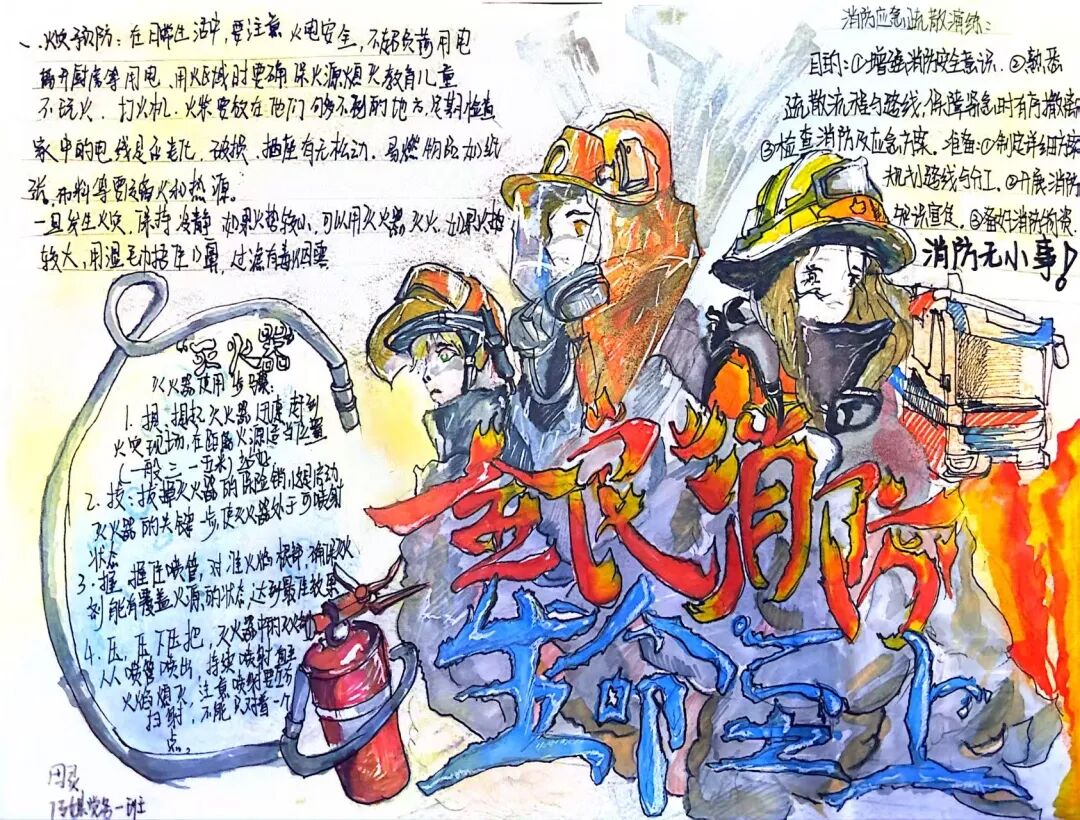 一.火灾预防：在日常生活中，要注意火电安全，不超负荷用电
离开厨房等用电、用火区域时要确保火源熄灭教育儿童
不玩火、打火机、火柴要放在他们够不到的地方，定期检查
家中的电线是否老化、破损、插座有无松动。易燃物品如纸
张、布料等要远离火和热源。
一旦发生火灾，保持冷静 如果火势较小，可以用灭火器灭火，如果火势
较大，用湿毛巾捂住口鼻，过滤有毒烟雾
消防应急疏散演练：
目的：①增强消防安全意识。②熟悉
疏散流程与路线，保障紧急时有序撤离
③检查消防及应急方案。准备：①制定详细方案
规划路线与分工。②开展消防
知识宣传。③备好消防物资。
消防无小事！
“灭火器”
灭火器使用步骤：
1.提、提起灭火器迅速赶到
火灾现场，在距离火源适当位置
（一般三—五米）站好
2.拔：拔掉灭火器的保险销，这是启动
灭火器的关键一步，使灭火器处于可喷射
状态
3.握 握住喷管，对准火焰根部，确保灭火
剂能有覆盖火源的状态，达到最佳效果
4.压，压下压把，灭火器中的灭火剂
从喷管喷出，持续喷射直至
火焰熄灭，注意喷射要左右
扫射，不能只对着一个
点。
全民消防
生命至上
一班